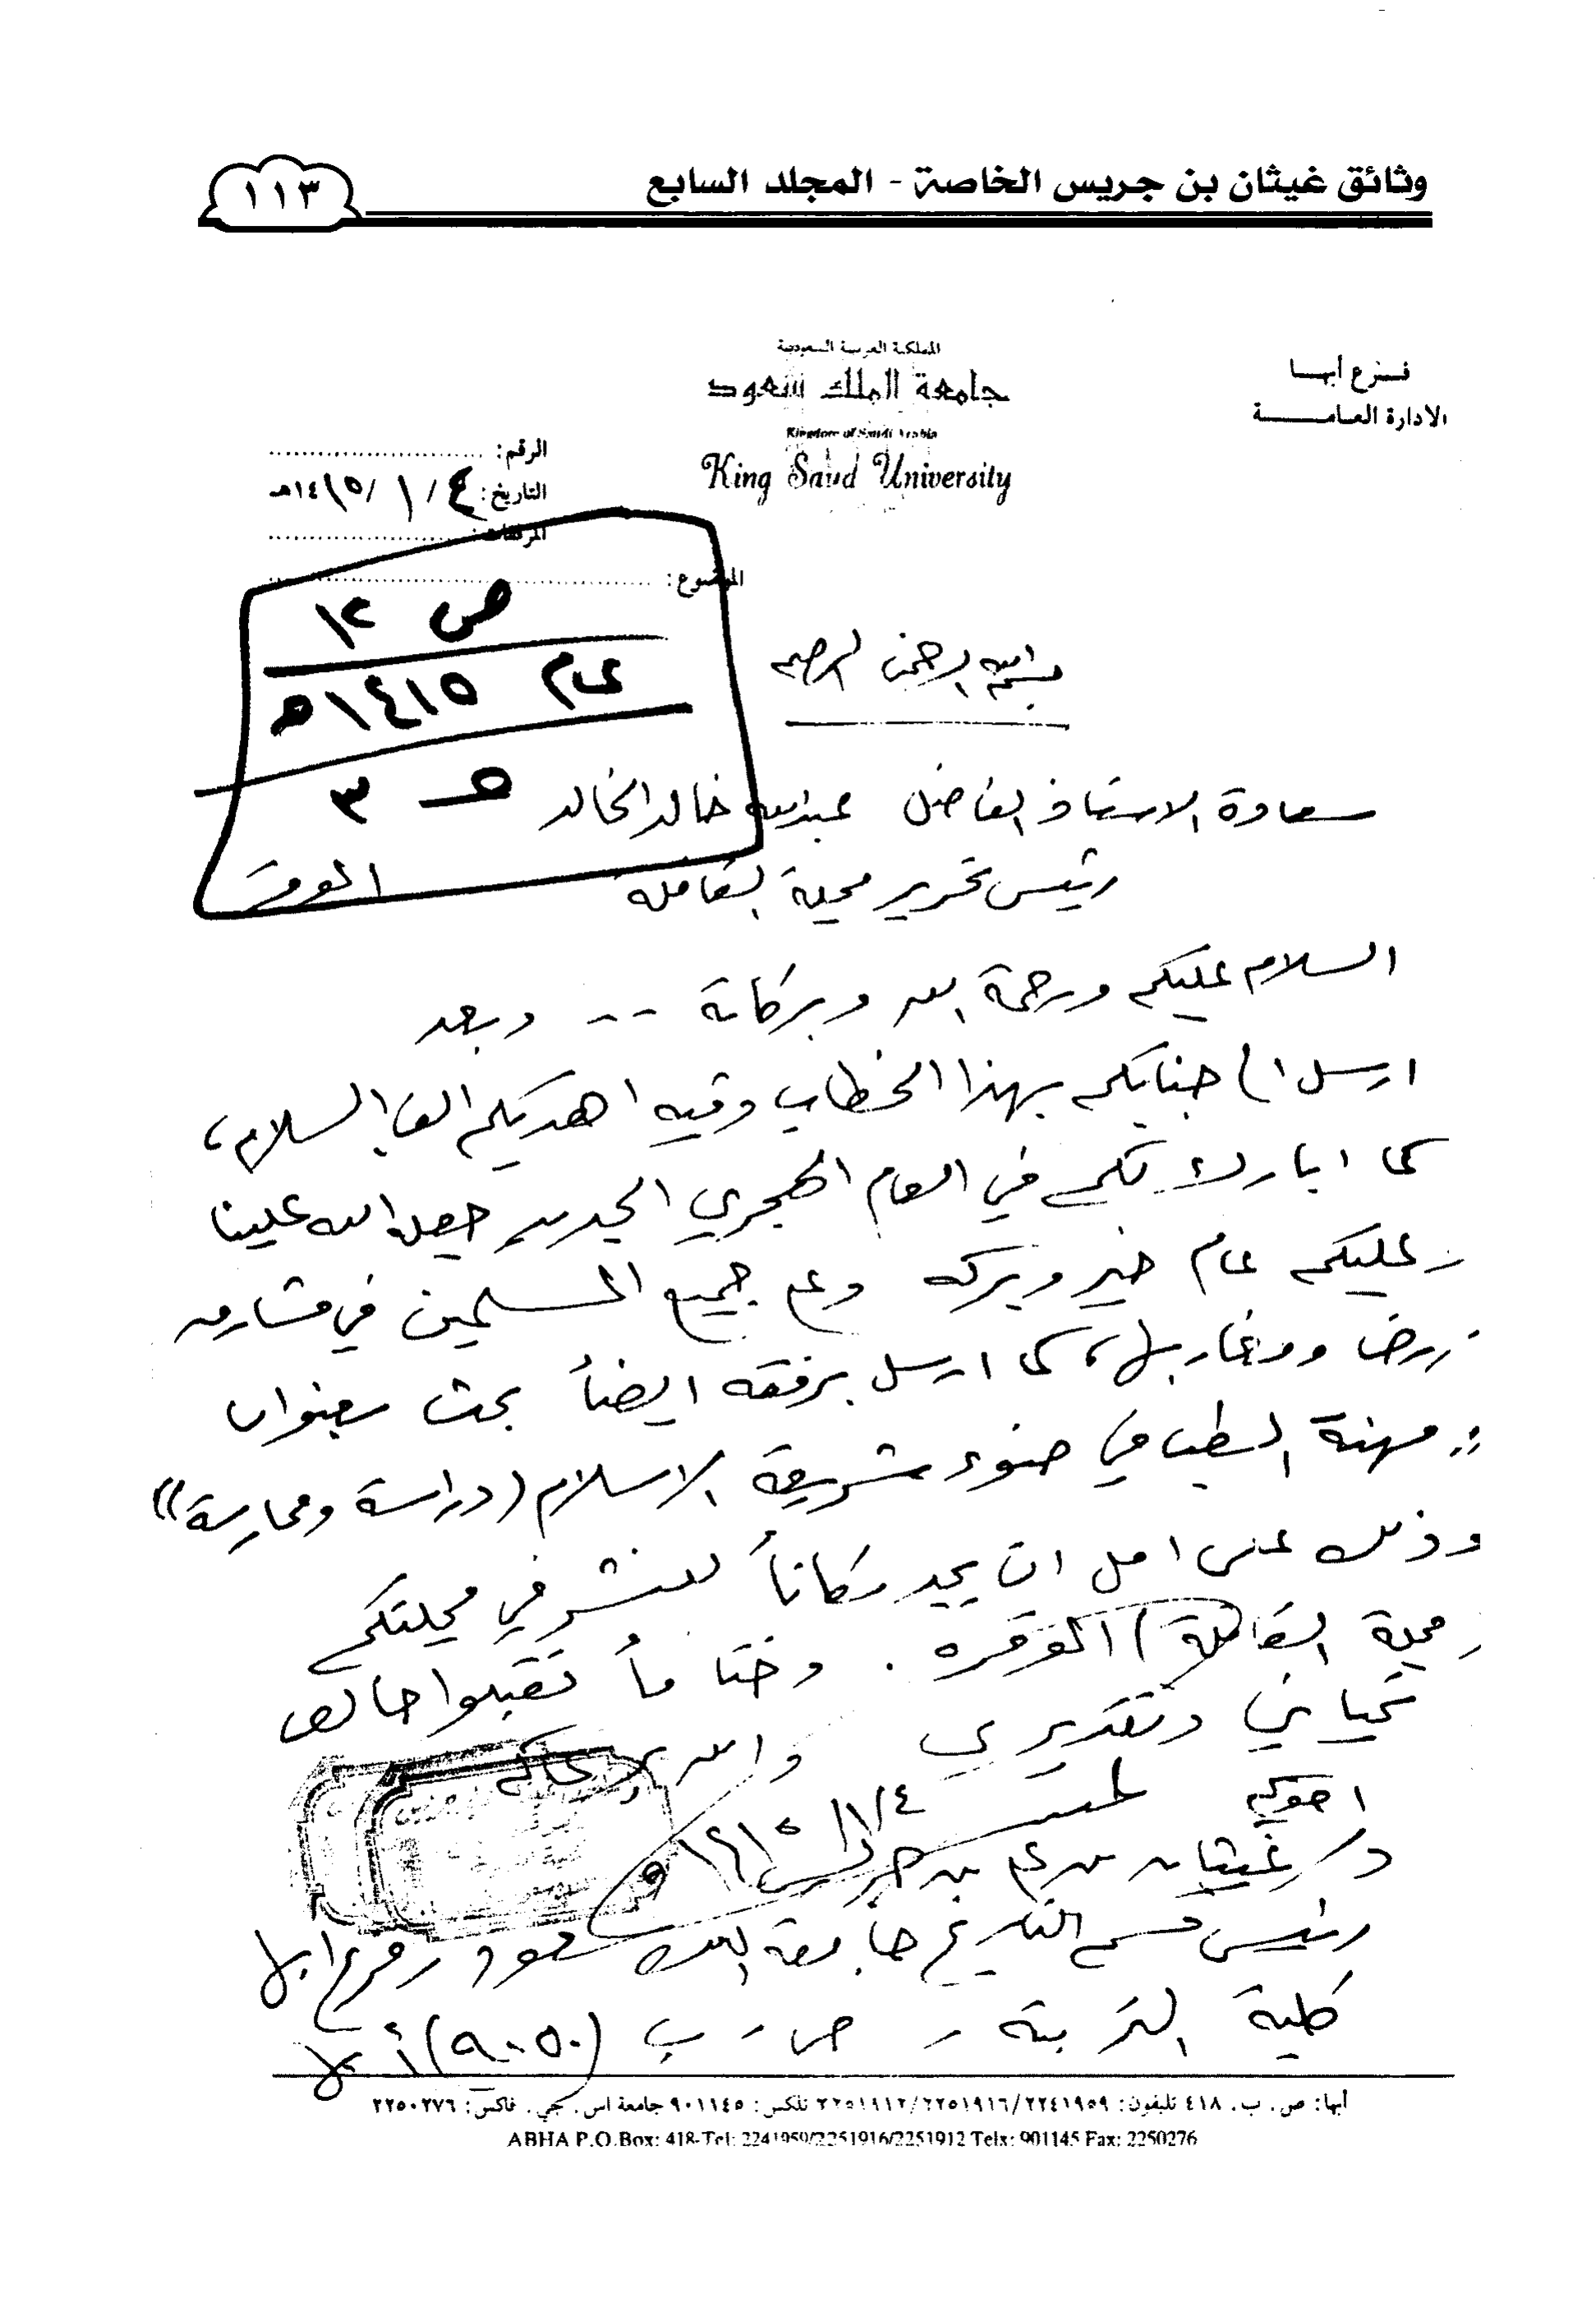 وثائق غيثان بن جريس الخاصة - المجلد السابع
١١٣
فرع أبها
الادارة العامة
المملكة العربية السعودية
جامعة الملك سعود
Kingdom of Saudi Arabia
King Saud University
الرقم:
التاريخ: ٤/ ١ /١٤١٥هـ
المرفقات:
الموضوع:
ص ١٢
عام ١٤١٥هـ
هـ ٣
بسم الله الرحمن الرحيم
سعادة الاستاذ الفاضل عبدالله خالد الخالد
رئيس تحرير مجلة القافلة الموقر
السلام عليكم ورحمة الله وبركاته -- وبعد
ارسل الى جنابكم بهذا الخطاب وفيه اهديكم الف السلام،
كما ابارك لكم في العام الهجري الجديد جعله الله علينا
وعليكم عام خير وبركه وعلى جميع المسلمين في مشارق
الارض ومغاربها، كما ارسل برفقه ايضاً بحث بعنوان
"مهنة الطب في ضوء شريعة الاسلام (دراسة وممارسة)"
وذلك على امل ان يجد مكاناً للنشر في مجلتكم
(مجلة القافلة) الموقره. وختاماً تقبلوا خالص
تحياتي وتقديري والله يرعاكم
اخوكم
١٤١٥/١/٤هـ
د/ غيثان بن علي بن جريس
رئيس قسم التاريخ جامعة الملك سعود / فرع ابها
كلية التربية - ص. ب (٩٠٥٠) أبها
أبها: ص. ب. ٤١٨ تليفون: ٢٢٤١٩٥٩/٢٢٥١٩١٦/٢٢٥١٩١٢ تلكس: ٩٠١١٤٥ جامعة اس. جي. فاكس: ٢٢٥٠٢٧٦
ABHA P.O.Box: 418-Tel: 2241959/2251916/2251912 Telx: 901145 Fax: 2250276